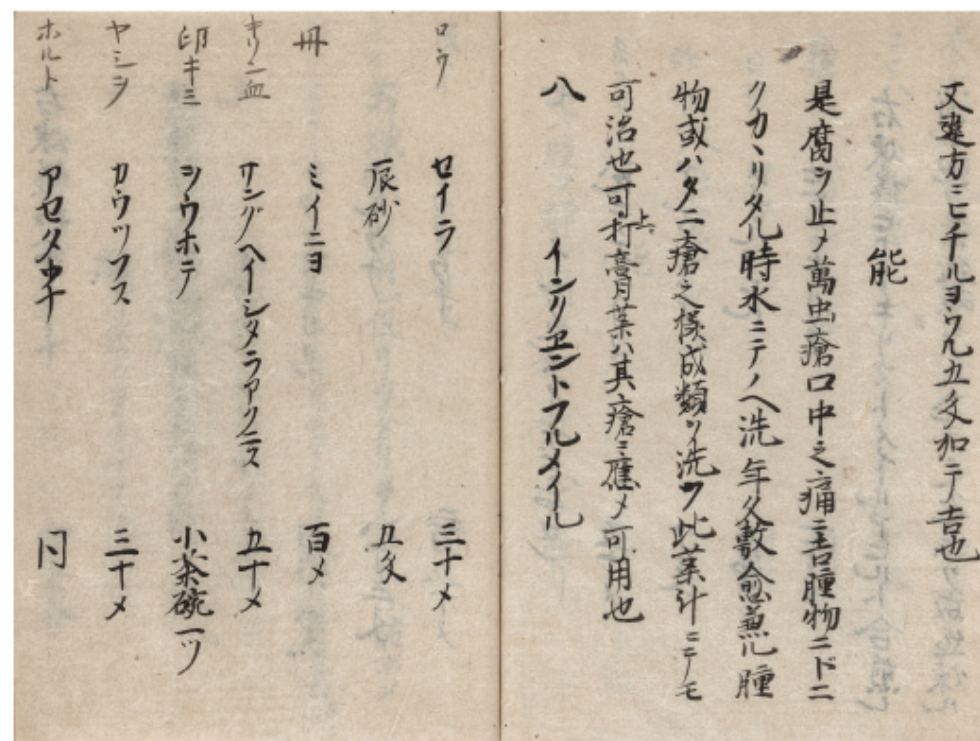 又違方ニヒチルヨウル五匁加テ吉也
能
是腐ヲ止メ萬虫瘡口中之痛ニ吉腫物ニドニ
クカヽリタル時水ニテノヘ洗年久敷愈兼ル腫
物或ハタヽニ瘡之様成類ヲ洗フ此薬計ニテモ
可治也可打上膏薬ハ其瘡ニ應メ可用也
八 インクヱントフルメイル
ロウ セイラ 三十メ
辰砂 五匁
丹 ミイニヨ 百メ
キリン血 サングヘイシタラアクニス 五十メ
卵キミ ヲウホテ 小茶碗一ツ
ヤシヲ カウツフス 三十メ
ホルト アセタ 同